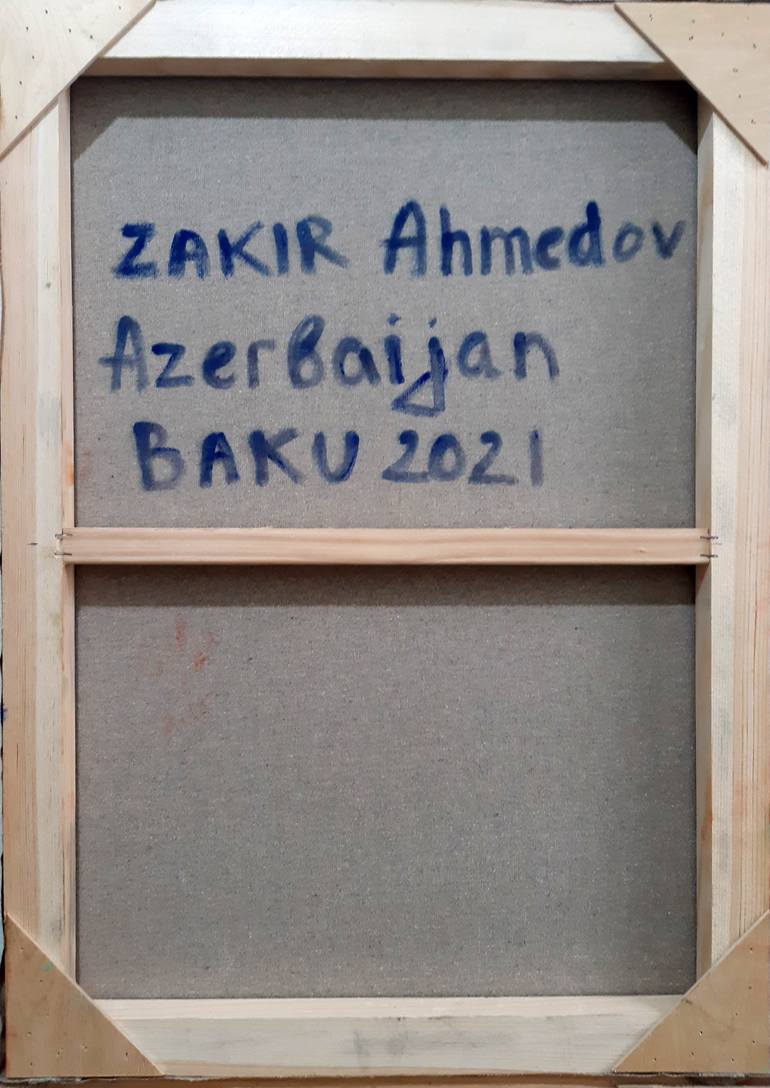 ZAKIR Ahmedov
Azerbaijan
BAKU 2021